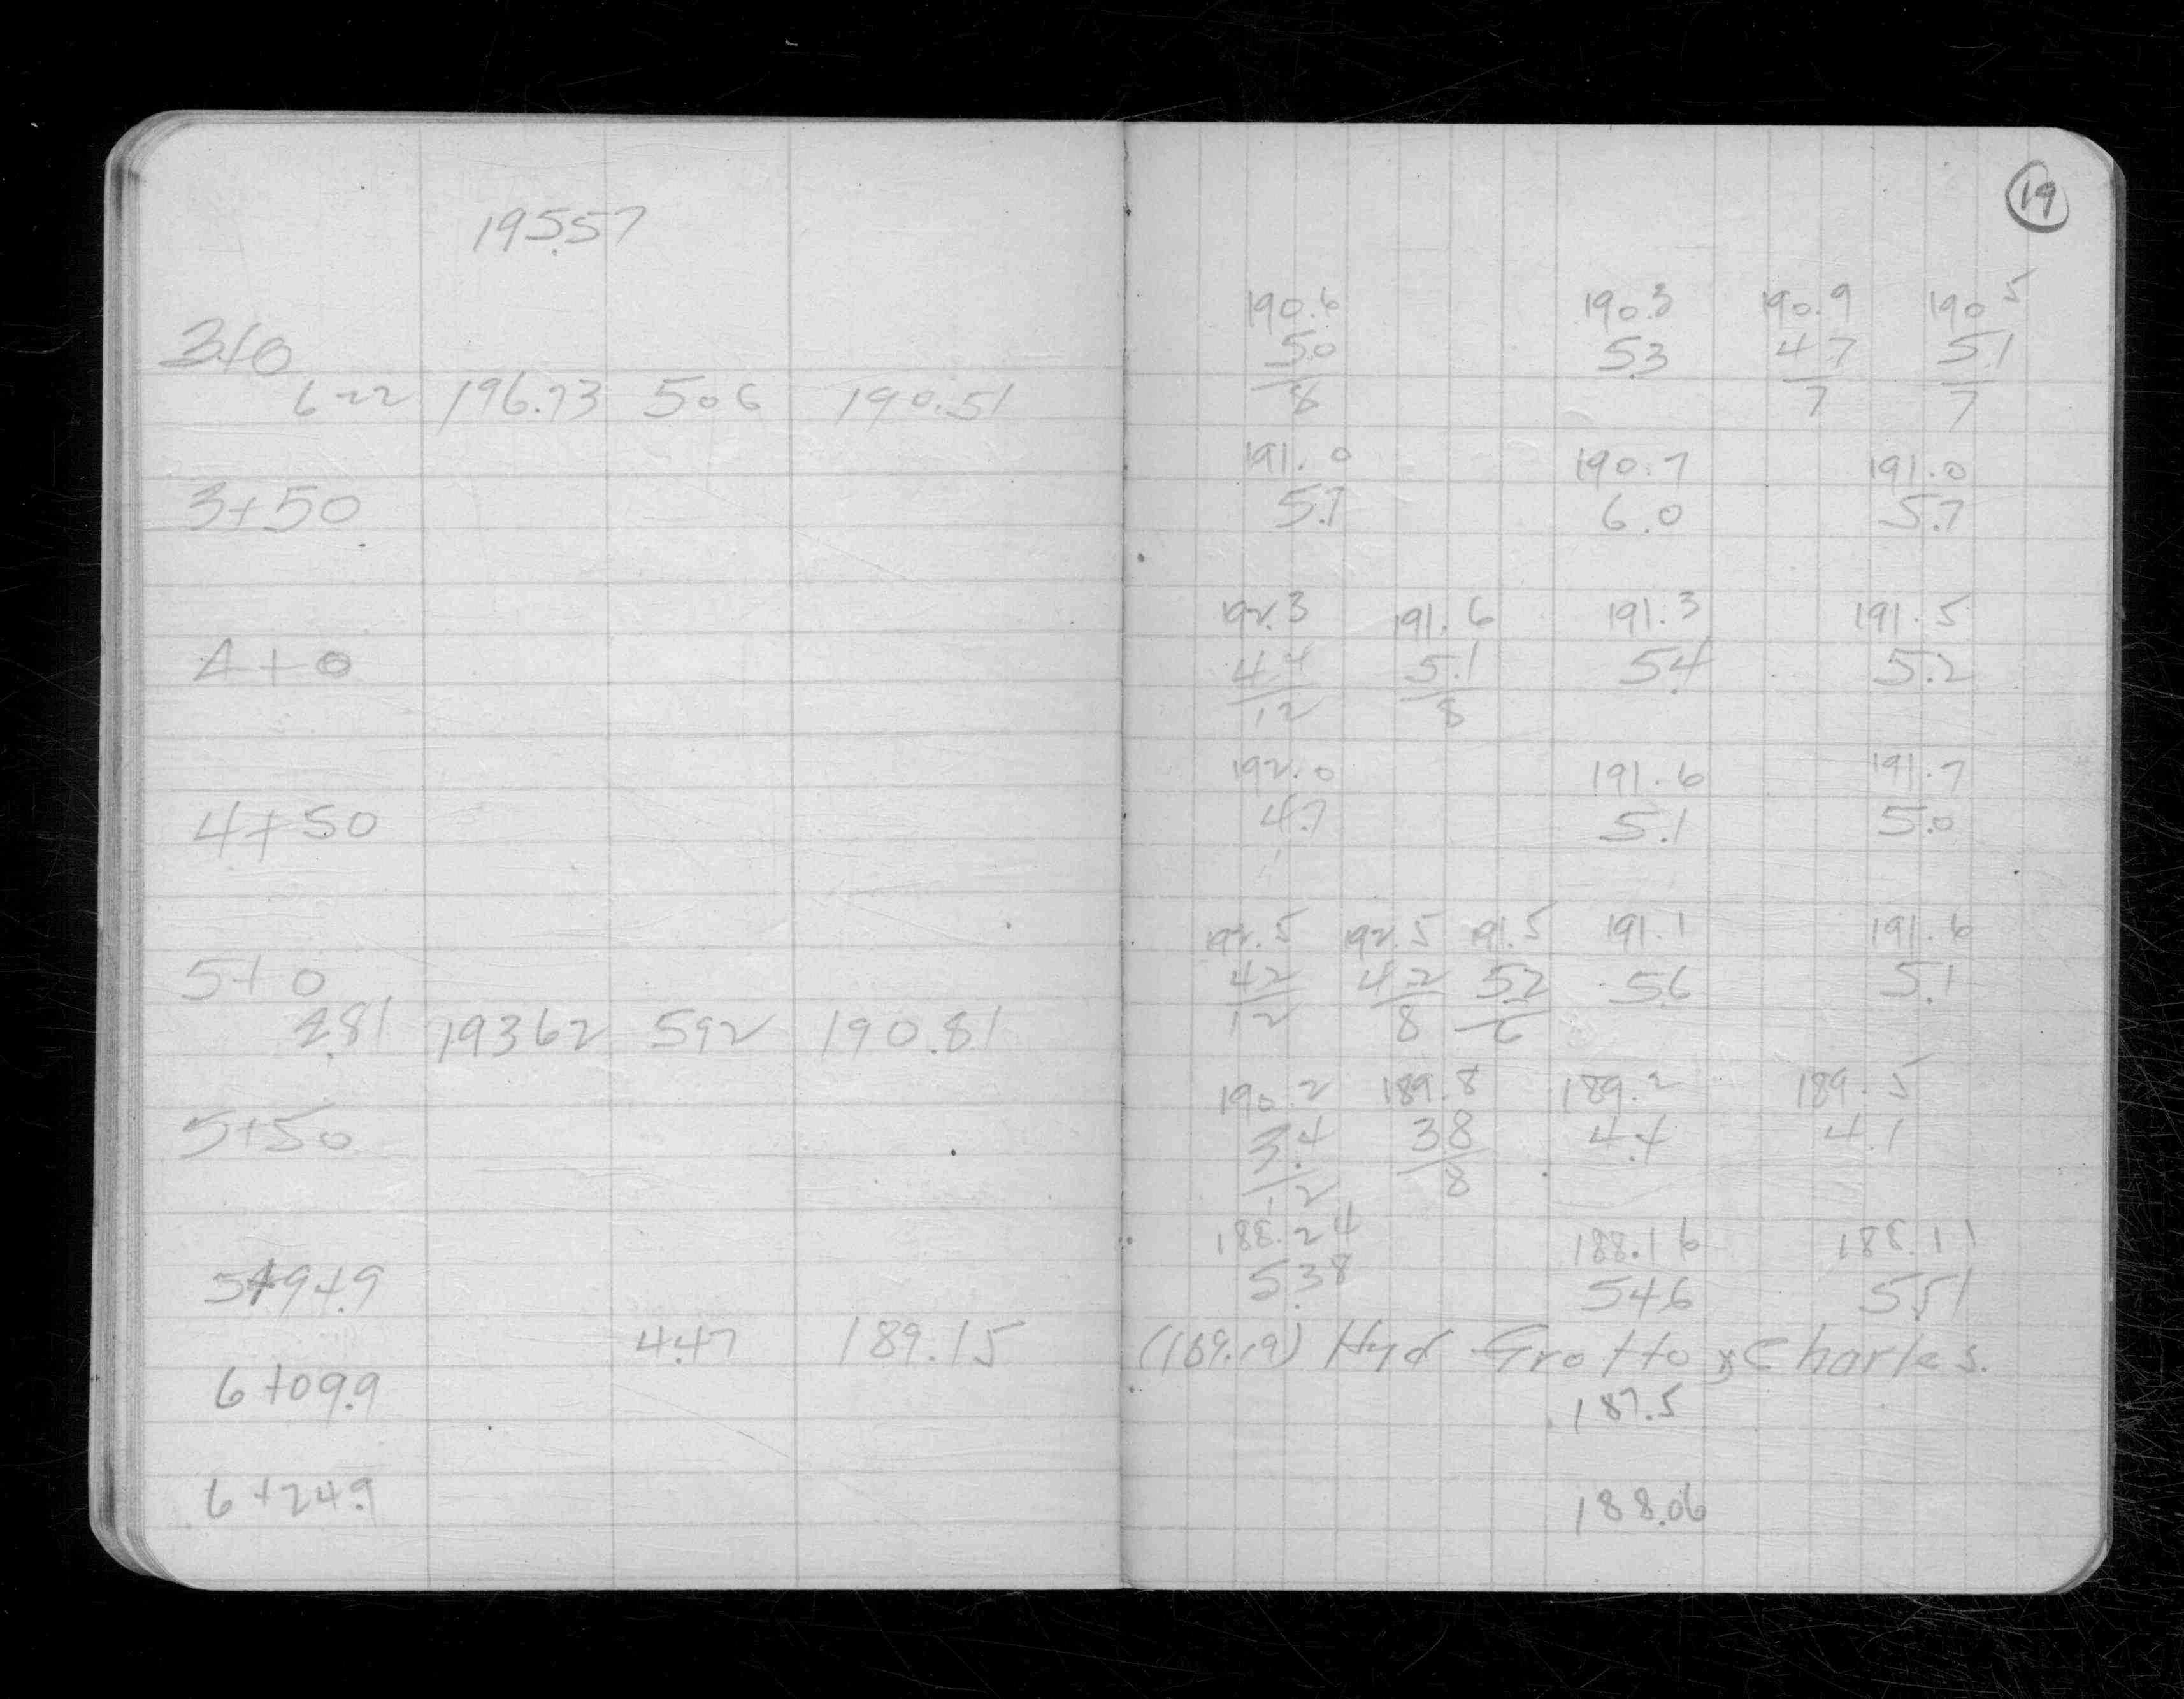 19
195.57
190.6 190.3 190.9 190.5
3+0 5.0 5.3 4.7 5.1
6.22 196.73 5.06 190.51 8 7 7
191.0 190.7 191.0
3+50 5.7 6.0 5.7
192.3 191.6 191.3 191.5
4+0 4.4 5.1 5.4 5.2
12 8
192.0 191.6 191.7
4+50 4.7 5.1 5.0
192.5 192.5 191.5 191.1 191.6
5+0 4.2 4.2 5.2 5.6 5.1
2.81 193.62 5.92 190.81 12 8 6
190.2 189.8 189.2 189.5
5+50 3.4 3.8 4.4 4.1
12 8
188.24 188.16 188.11
5+94.9 5.38 5.46 5.51
4.47 189.15 (189.19) Hyd Grotto & Charles.
6+09.9 187.5
6+24.9 188.06